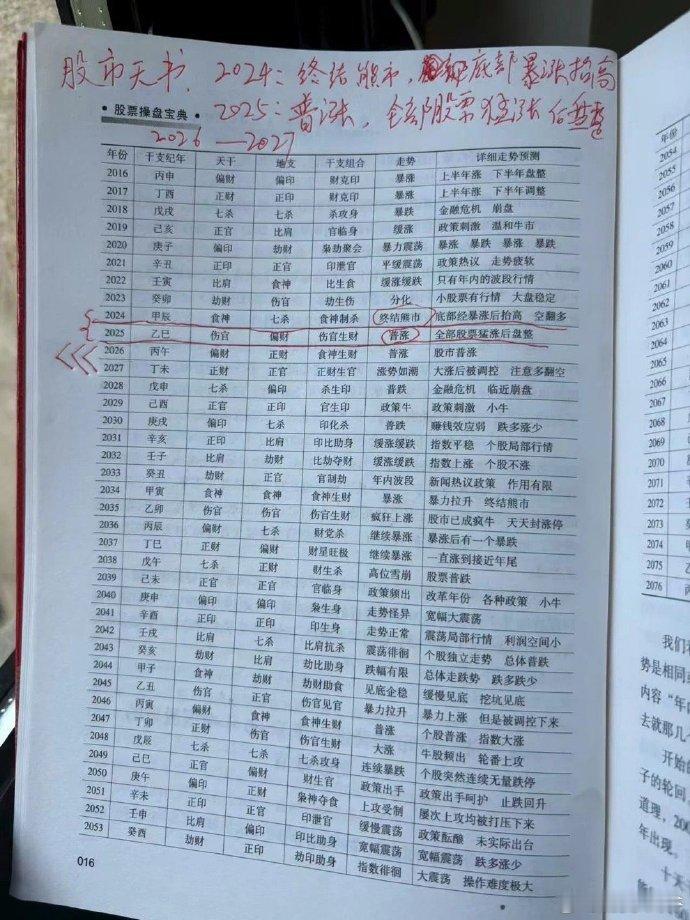 股市天书. 2024: 终结熊市, 底部暴涨抬高
2025: 普涨, 全部股票猛涨后盘整
2026—2027
• 股票操盘宝典 •
年份 干支纪年 天干 地支 干支组合 走势 详细走势预测
2016 丙申 偏财 偏印 财克印 暴涨 上半年涨 下半年盘整
2017 丁酉 正财 正印 财克印 暴涨 上半年涨 下半年调整
2018 戊戌 七杀 七杀 杀攻身 暴跌 金融危机 崩盘
2019 己亥 正官 比肩 官临身 缓涨 政策刺激 温和牛市
2020 庚子 偏印 劫财 枭劫聚会 暴力震荡 暴涨 暴跌 暴涨 暴跌
2021 辛丑 正印 正官 印泄官 平缓震荡 政策热议 走势疲软
2022 壬寅 比肩 食神 比生食 缓涨缓跌 只有年内的波段行情
2023 癸卯 劫财 伤官 劫生伤 分化 小股票有行情 大盘稳定
2024 甲辰 食神 七杀 食神制杀 终结熊市 底部经暴涨后抬高 空翻多
2025 乙巳 伤官 偏财 伤官生财 普涨 全部股票猛涨后盘整
2026 丙午 偏财 正财 食神生财 普涨 股市普涨
2027 丁未 正财 正官 正财生官 涨势如潮 大涨后被调控 注意多翻空
2028 戊申 七杀 偏印 杀生印 普跌 金融危机 临近崩盘
2029 己酉 正官 正印 官生印 政策牛 政策刺激 小牛
2030 庚戌 偏印 七杀 印化杀 普跌 赚钱效应弱 跌多涨少
2031 辛亥 正印 比肩 印比助身 缓涨缓跌 指数平稳 个股局部行情
2032 壬子 比肩 劫财 比劫夺财 缓涨缓跌 指数上涨 个股不涨
2033 癸丑 劫财 正官 官制劫 年内波段 新闻热议政策 作用有限
2034 甲寅 食神 食神 食神生财 暴涨 暴力拉升 终结熊市
2035 乙卯 伤官 伤官 伤官生财 疯狂上涨 股市已成疯牛 天天封涨停
2036 丙辰 偏财 七杀 财党杀 继续暴涨 暴涨后有一个暴跌
2037 丁巳 正财 偏财 财星旺极 继续暴涨 一直涨到接近年尾
2038 戊午 七杀 正财 财生杀 高位雪崩 股票普跌
2039 己未 正官 正官 官临身 政策频出 改革年份 各种政策 小牛
2040 庚申 偏印 偏印 枭生身 走势怪异 宽幅大震荡
2041 辛酉 正印 正印 印生身 走势正常 震荡局部行情 利润空间小
2042 壬戌 比肩 七杀 比肩抗杀 震荡徘徊 个股独立走势 总体普跌
2043 癸亥 劫财 比肩 劫比助身 跌幅有限 总体走跌势 跌多跌少
2044 甲子 食神 劫财 劫财助食 见底企稳 缓慢见底 挖坑见底
2045 乙丑 伤官 正官 伤官见官 暴力拉升 暴力上涨 但是被调控下来
2046 丙寅 偏财 食神 食神生财 普涨 个股普涨 指数大涨
2047 丁卯 正财 伤官 伤官生财 大涨 牛股频出 轮番上攻
2048 戊辰 七杀 七杀 七杀攻身 连续暴跌 个股突然连续无量跌停
2049 己巳 正官 偏财 财生官 政策出手 政策出手呵护 止跌回升
2050 庚午 偏印 正财 枭神夺食 上攻受制 屡次上攻均被打压下来
2051 辛未 正印 正官 印泄官 缓慢震荡 政策酝酿 未实际出台
2052 壬申 比肩 偏印 印比助身 宽幅震荡 宽幅震荡 跌多涨少
2053 癸酉 劫财 正印 劫印助身 指数徘徊 大震荡 操作难度极大
016
2054
2060
2061
2062
2063
2064
2065
2066
2067
2068
2069
2070
2071
2072
2073
2074
2075
2076
我们
势是相同
内容“年
去就那几个
开始的
子的轮回
道理，200
年出现。
十天